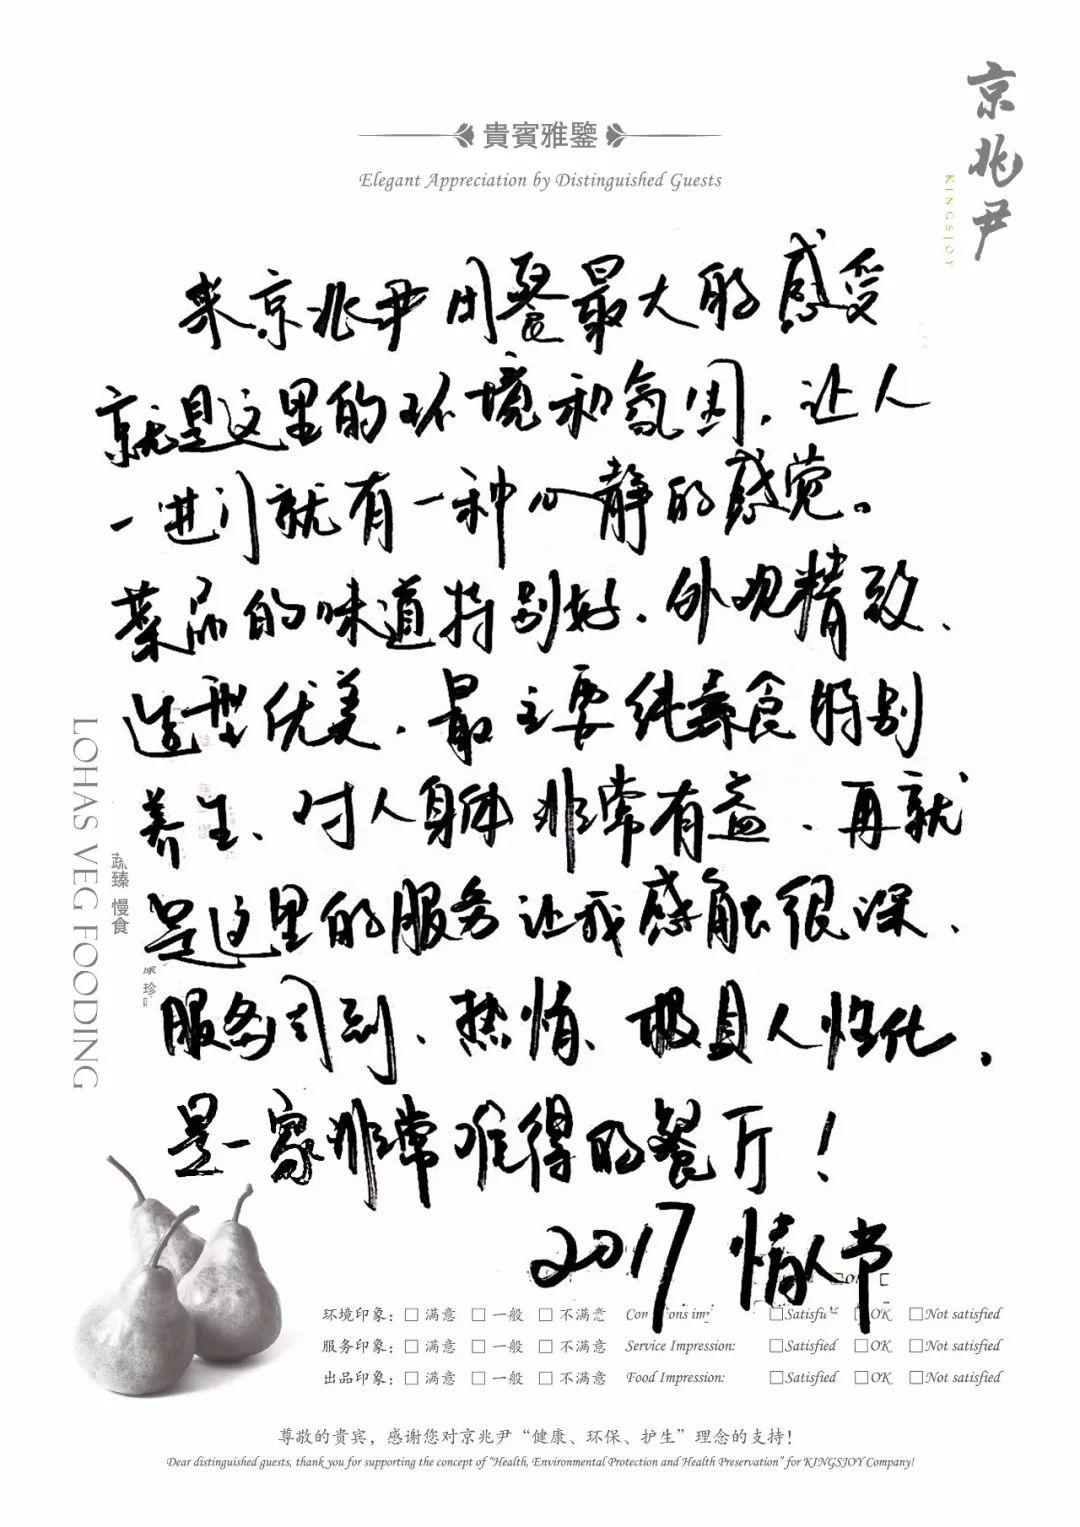 京兆尹
KINGSJOY
貴賓雅鑒
Elegant Appreciation by Distinguished Guests
来京兆尹用餐最大的感受
就是这里的环境和氛围，让人
一进门就有一种心静的感觉。
菜品的味道特别好，外观精致、
造型优美，最主要纯素食特别
养生、对人身体非常有益，再就
是这里的服务让我感触很深、
服务周到、热情、极具人性化，
是一家非常难得的餐厅！
2017 情人节
LOHAS VEG FOODING
蔬臻 慢食
珍
环境印象：□ 满意 □ 一般 □ 不满意 □Satisfied □OK □Not satisfied
服务印象：□ 满意 □ 一般 □ 不满意 Service Impression: □Satisfied □OK □Not satisfied
出品印象：□ 满意 □ 一般 □ 不满意 Food Impression: □Satisfied □OK □Not satisfied
尊敬的贵宾，感谢您对京兆尹“健康、环保、护生”理念的支持！
Dear distinguished guests, thank you for supporting the concept of "Health, Environmental Protection and Health Preservation" for KINGSJOY Company!